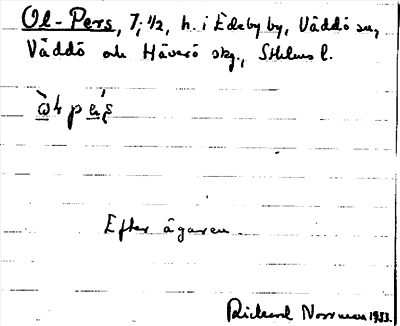 Ol-Pers, 7; 1/2, h. i Edeby by, Väddö sn,
Väddö och Häverö skg., Sthlms l.
Efter ägaren
Rickard Norrman 1933.